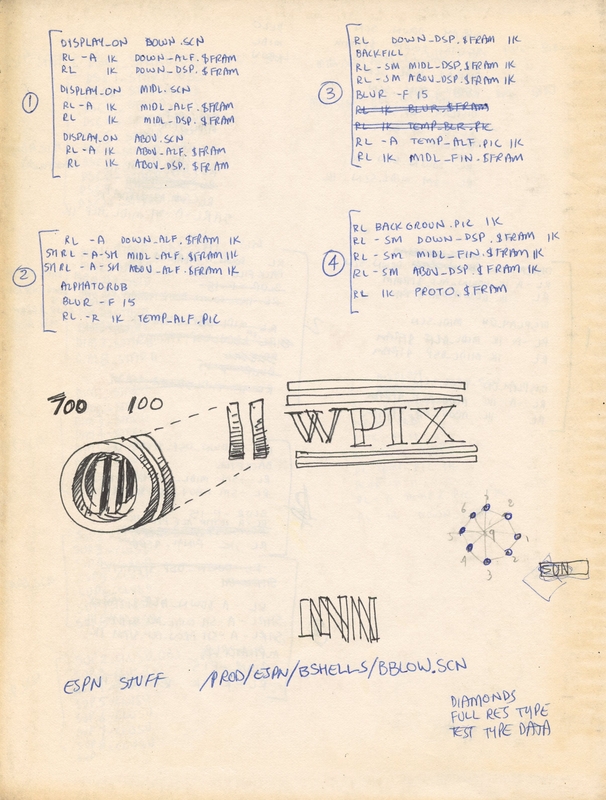 ①
DISPLAY_ON DOWN.SCN
RL -A 1K DOWN_ALF.$FRAM
RL 1K DOWN_DSP.$FRAM
DISPLAY_ON MIDL.SCN
RL -A 1K MIDL_ALF.$FRAM
RL 1K MIDL_DSP.$FRAM
DISPLAY_ON ABOV.SCN
RL -A 1K ABOV_ALF.$FRAM
RL 1K ABOV_DSP.$FRAM
②
RL -A DOWN_ALF.$FRAM 1K
SMRL -A-SM MIDL_ALF.$FRAM 1K
SMRL -A-SM ABOV_ALF.$FRAM 1K
ALPHATORGB
BLUR -F 15
RL -R 1K TEMP_ALF.PIC
③
RL DOWN_DSP.$FRAM 1K
BACKFILL
RL -SM MIDL_DSP.$FRAM 1K
RL -SM ABOV_DSP.$FRAM 1K
BLUR -F 15
RL 1K BLUR.$FRAM
RL 1K TEMP_BLR.PIC
RL -A TEMP_ALF.PIC 1K
RL 1K MIDL_FIN.$FRAM
④
RL BACKGROUN.PIC 1K
RL -SM DOWN_DSP.$FRAM 1K
RL -SM MIDL_FIN.$FRAM 1K
RL -SM ABOV_DSP.$FRAM 1K
RL 1K PROTO.$FRAM
700 100
WPIX
6 7 8
5 9 1
4 3 2
SUN
ESPN STUFF /PROD/ESPN/BSHELLS/BBLOW.SCN
DIAMONDS
FULL RES TYPE
TEST TYPE DATA